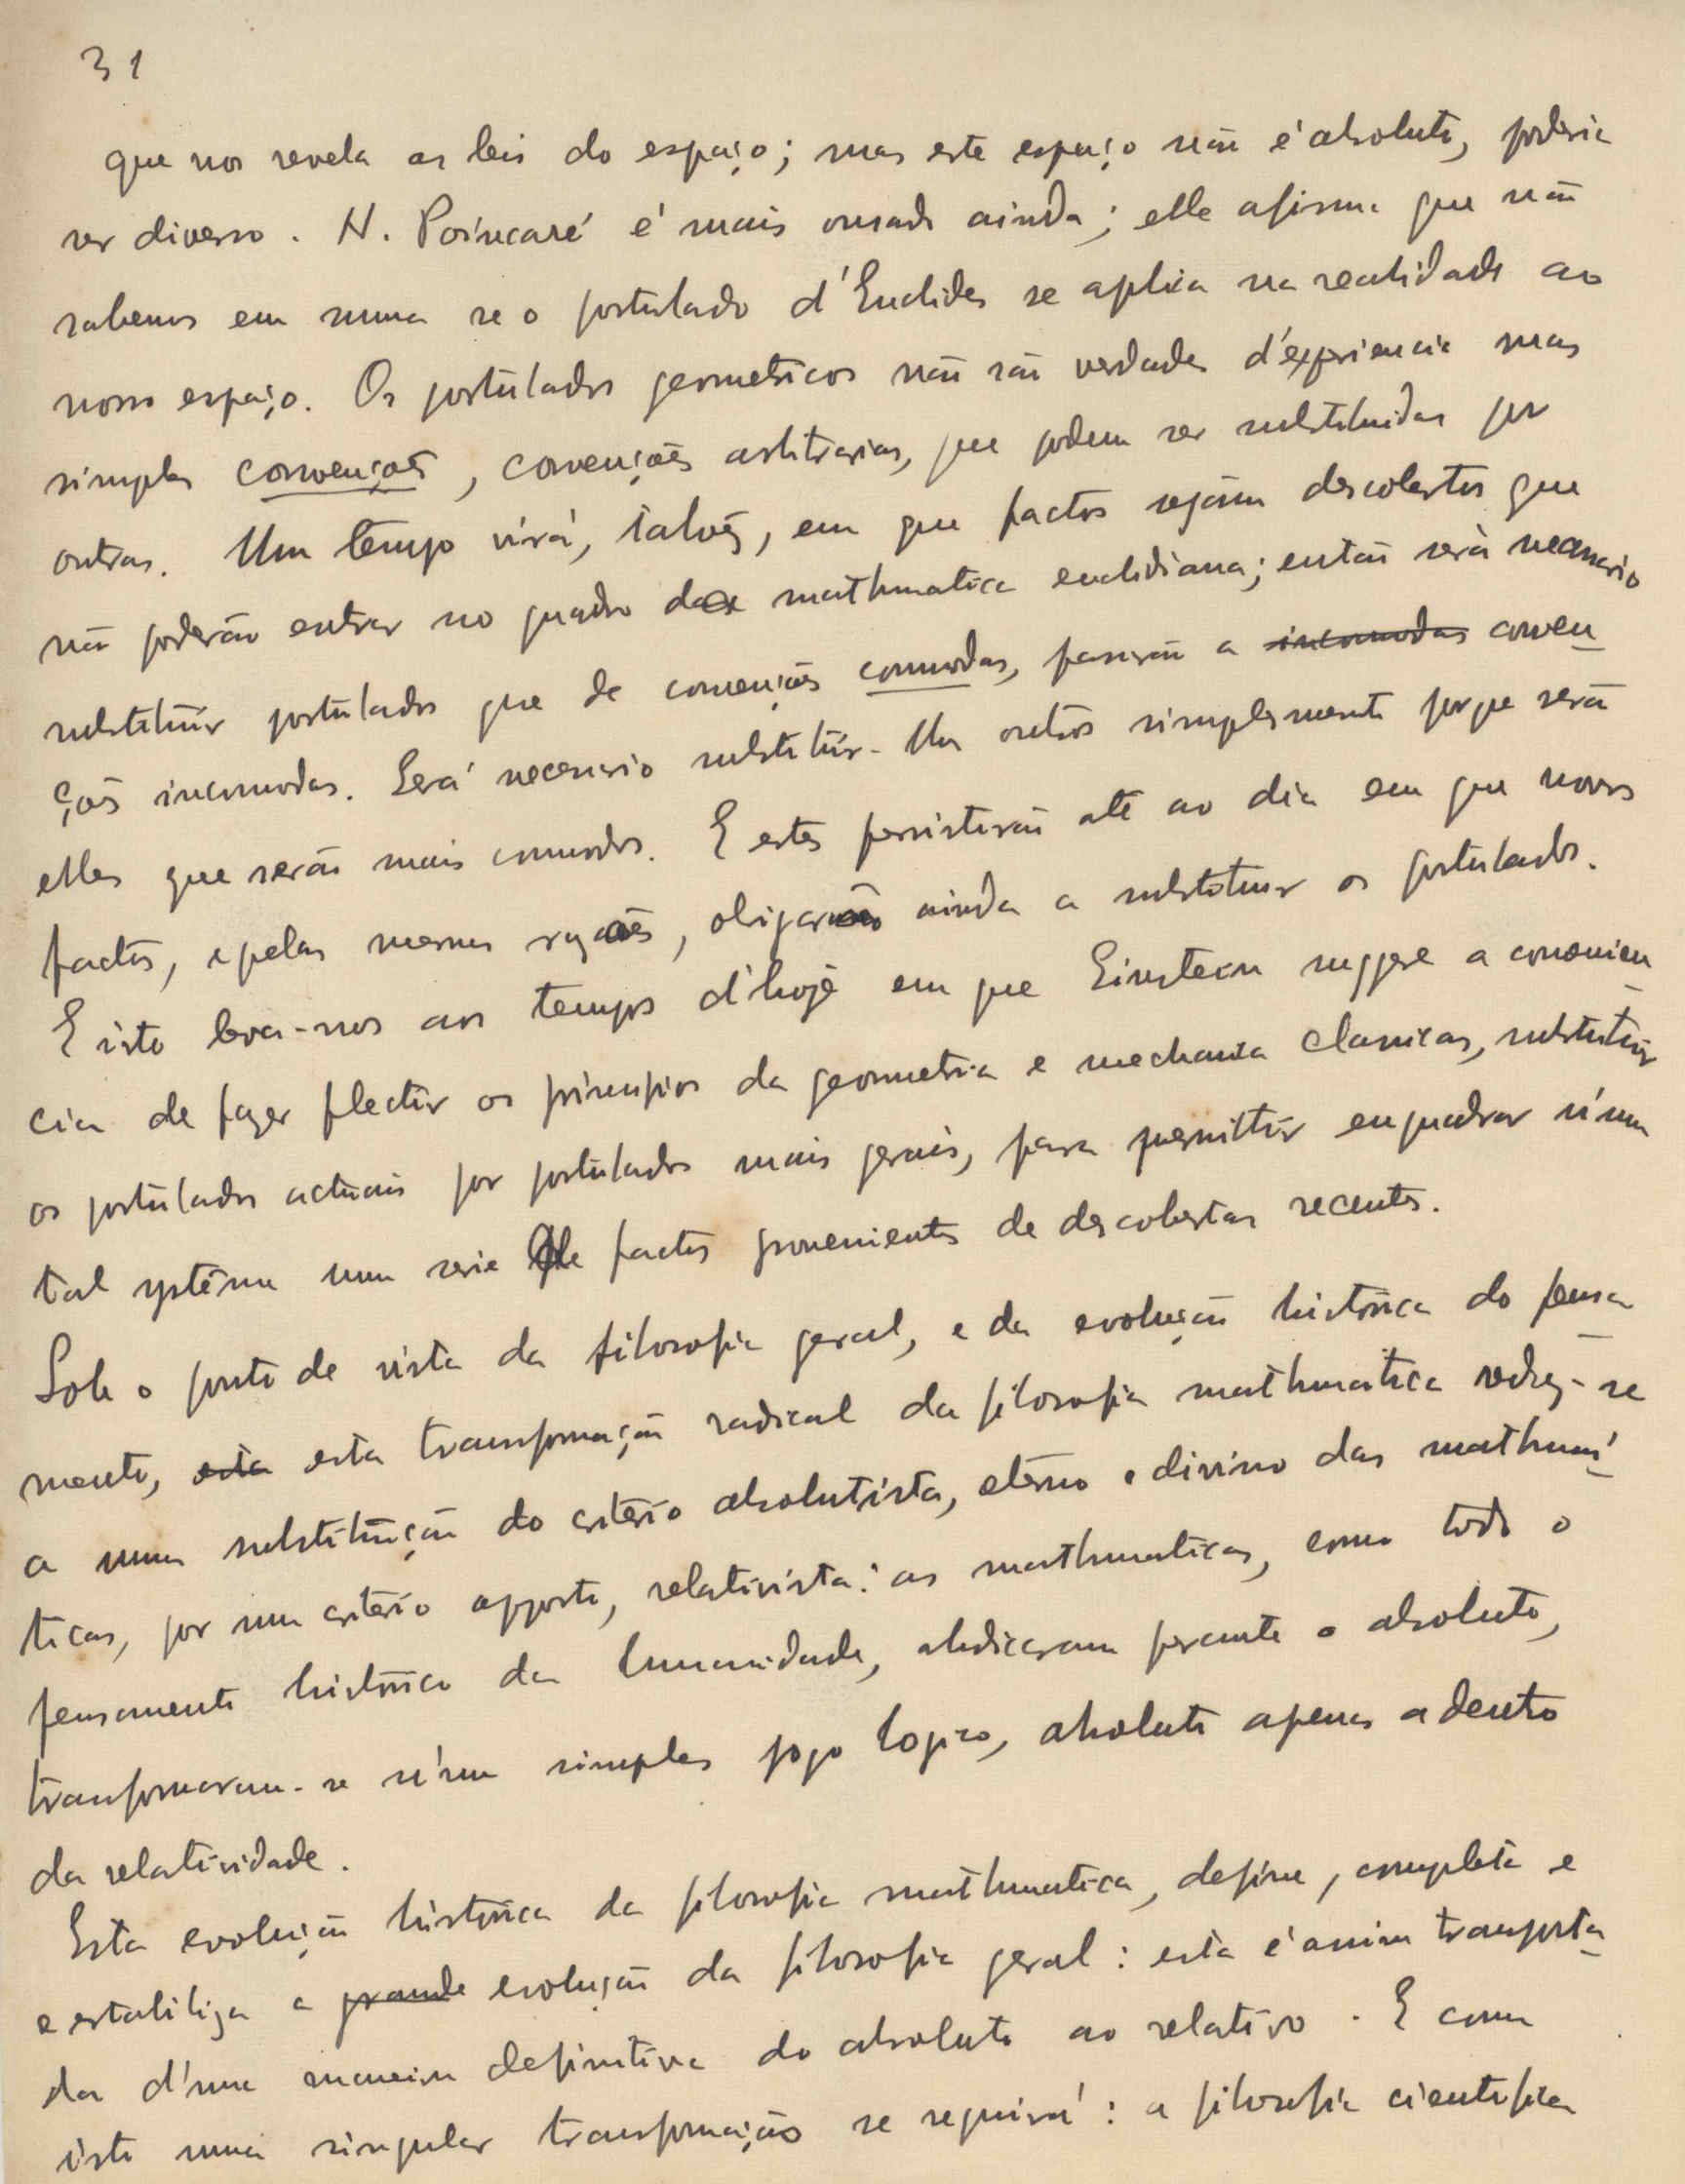 31
que nos revela as leis do espaço; mas este espaço não é absoluto, poderia
ser diverso. H. Poíncaré é mais ousado ainda; elle afirma que não
sabemos em summa se o postulado d'Euclides se aplica na realidade ao
nosso espaço. Os postulados geometricos não são verdades d'experiencia mas
simples convenções, convenções arbitrarias, que podem ser substituidas por
outras. Um tempo virá, talvez, em que factos sejam descobertos que
não poderão entrar no quadro da mathmatica euclidiana; então será necessario
substituir postulados que de convenções commodas, passarão a incomodas conven
ções incomodas. Será necessario substituir-lhes outros simplesmente porque serão
elles que serão mais comodos. E estes persistirão até ao dia em que novos
factos, e pelas mesmas razões, obrigarão ainda a substituir os postulados.
E isto leva-nos aos tempos d'hoje em que Einstein suggere a convenien
cia de fazer flectir os principios da geometria e mechanica classicas, substituir
os postulados actuais por postulados mais gerais, para permittir enquadrar n'um
tal systema uma serie de factos provenientes de descobertas recentes.
Sob o ponto de vista da filosofia geral, e da evolução histórica do pensa
mento, esta esta transformação radical da filosofia mathmatica reduz-se
a uma substituição do critério absolutista, eterno e divino das mathmá
ticas, por um critério opposto, relativista: as mathmaticas, como todo o
pensamento histórico da humanidade, abdicaram perante o absoluto,
transformaram-se n'um simples jogo logico, absoluto apenas adentro
da relatividade.
Esta evolução histórica da filosofia mathmatica, define, completa e
e estabiliza a grande evolução da filosofia geral: esta é assim transporta
da d'uma maneira definitiva do absoluto ao relativo. E com
isto uma singular transformação se seguirá: a filosofia cientifica